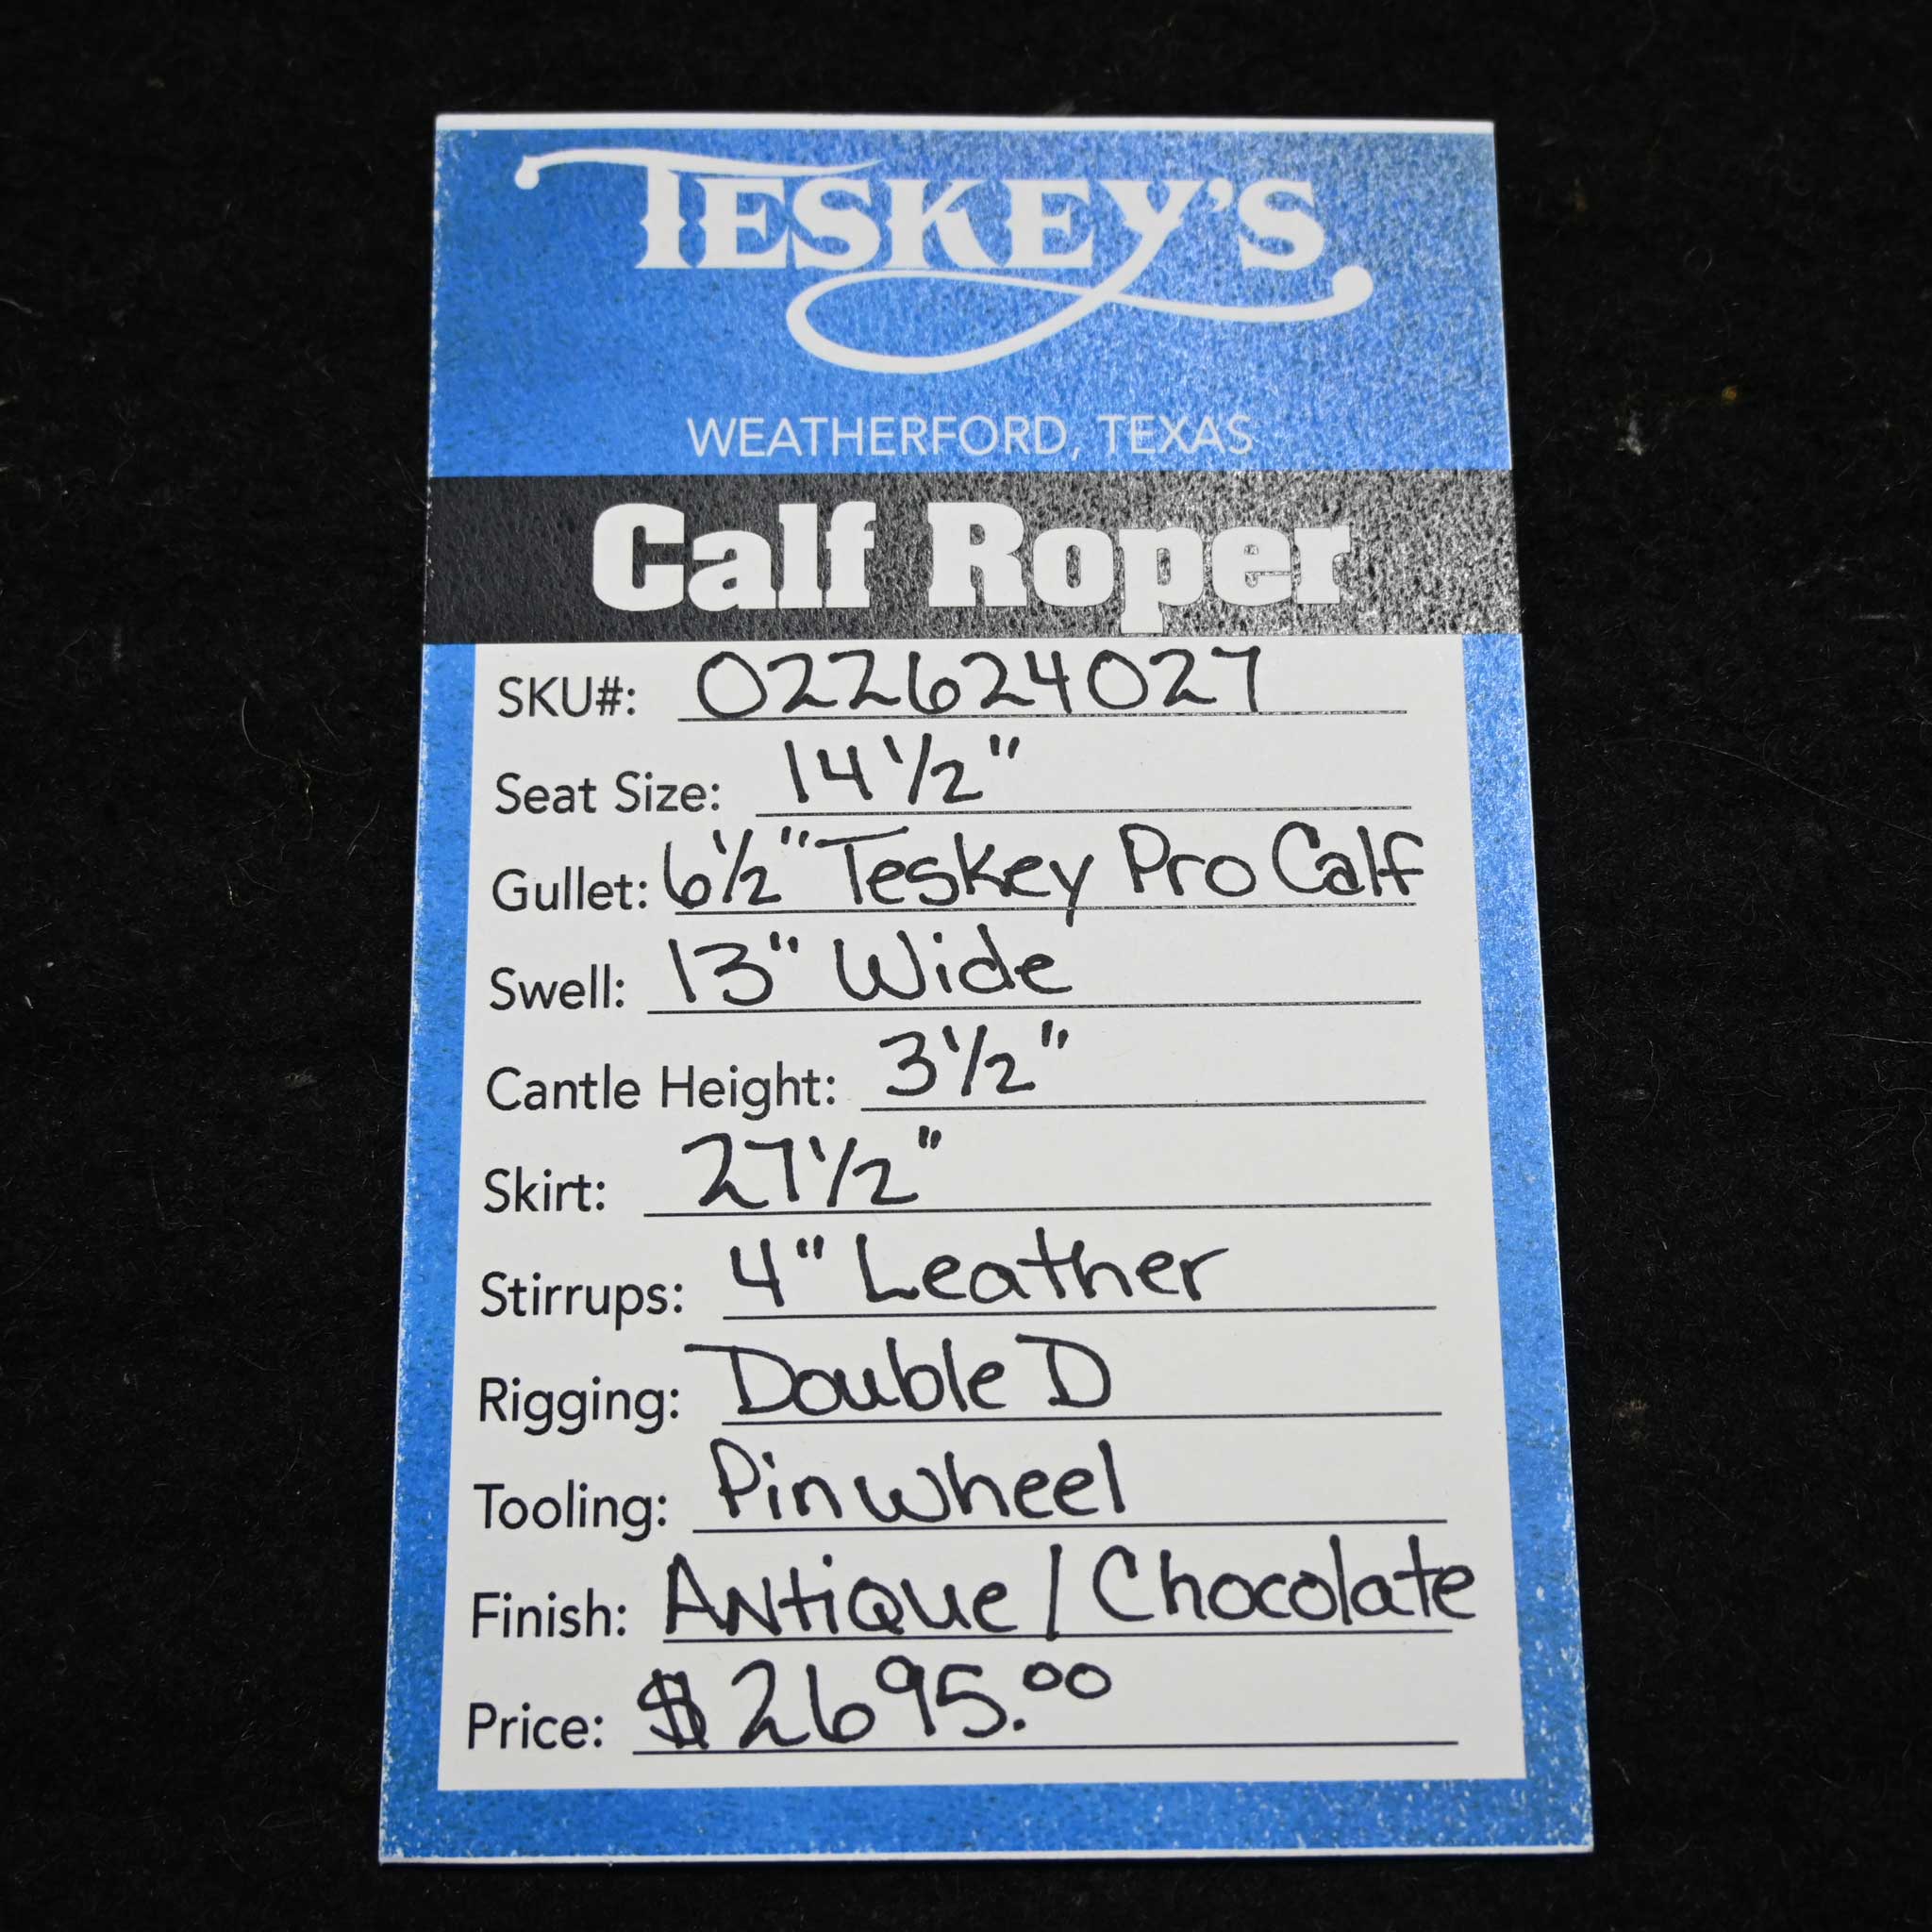 TESKEY'S
WEATHERFORD, TEXAS
Calf Roper
SKU#: 022624027
Seat Size: 14 1/2"
Gullet: 6 1/2" Teskey Pro Calf
Swell: 13" Wide
Cantle Height: 3 1/2"
Skirt: 27 1/2"
Stirrups: 4" Leather
Rigging: Double D
Tooling: Pinwheel
Finish: Antique / Chocolate
Price: $2695.00